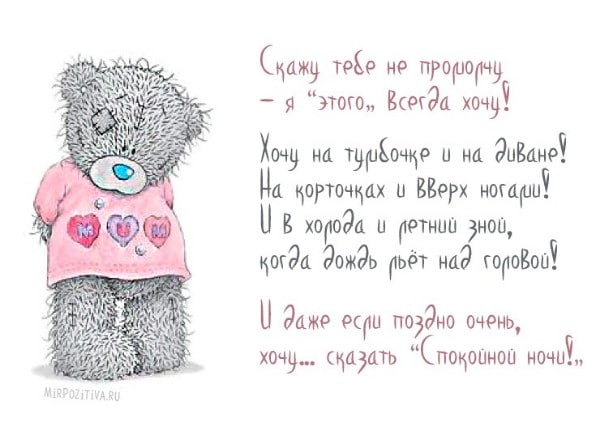 Скажу тебе не промолчу
– я “этого„ Всегда хочу!
Хочу на тумбочке и на диване!
На корточках и ВВерх ногами!
И в холода и летний зной,
когда дождь льёт над головой!
И даже если поздно очень,
хочу... сказать “Спокойной ночи!„
MUM
MIRPOZITIVA.RU